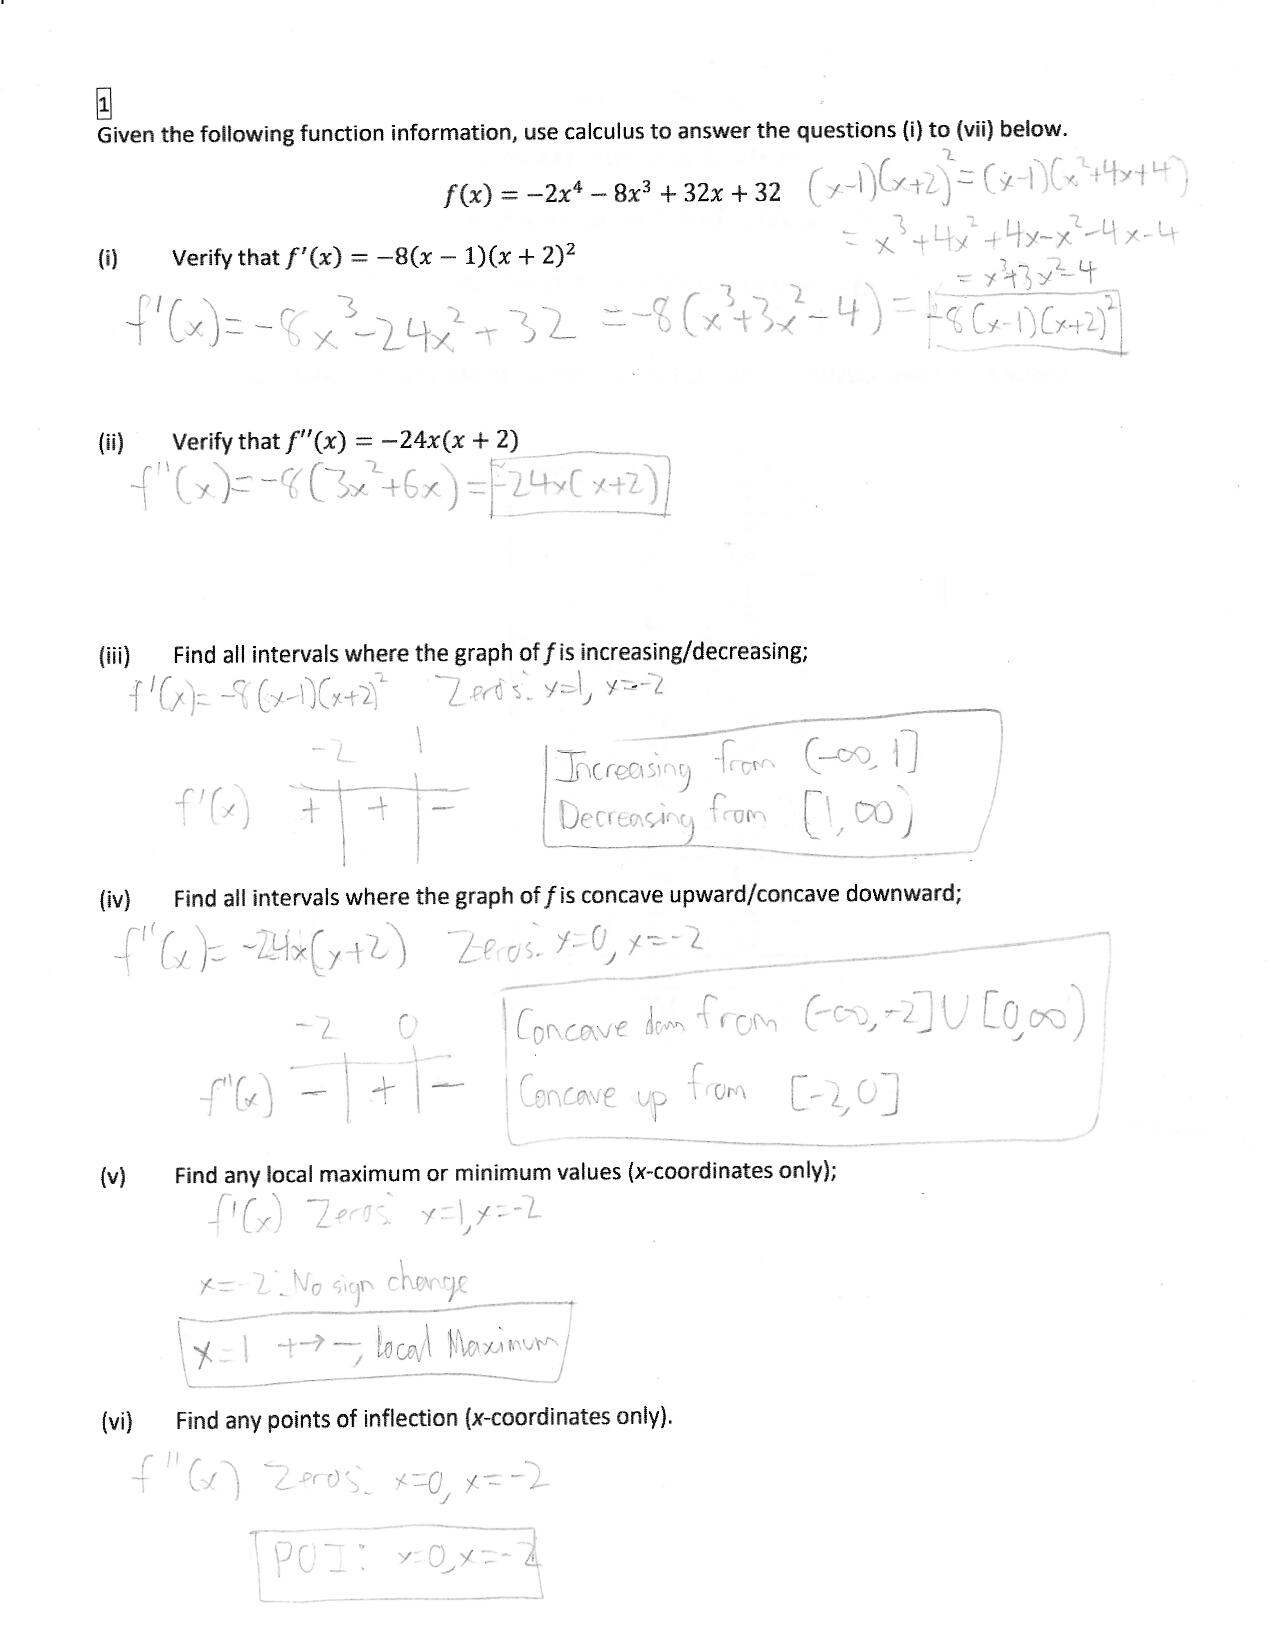 1
Given the following function information, use calculus to answer the questions (i) to (vii) below.
f(x) = −2x⁴ − 8x³ + 32x + 32 (x-1)(x+2)² = (x-1)(x²+4x+4)
= x³+4x²+4x-x²-4x-4
(i) Verify that f′(x) = −8(x − 1)(x + 2)²
= x³+3x²-4
f'(x) = -8x³-24x²+32 = -8(x³+3x²-4) = -8(x-1)(x+2)²
(ii) Verify that f′′(x) = −24x(x + 2)
f''(x) = -8(3x²+6x) = -24x(x+2)
(iii) Find all intervals where the graph of f is increasing/decreasing;
f'(x) = -8(x-1)(x+2)² Zeros: x=1, x=-2
-2 1
f'(x) + + -
Increasing from (-∞, 1]
Decreasing from [1, ∞)
(iv) Find all intervals where the graph of f is concave upward/concave downward;
f''(x) = -24x(x+2) Zeros: x=0, x=-2
-2 0
f''(x) - + -
Concave down from (-∞,-2] U [0,∞)
Concave up from [-2,0]
(v) Find any local maximum or minimum values (x-coordinates only);
f'(x) Zeros: x=1, x=-2
x=-2: No sign change
x=1 +→-, local Maximum
(vi) Find any points of inflection (x-coordinates only).
f''(x) Zeros: x=0, x=-2
POI: x=0, x=-2